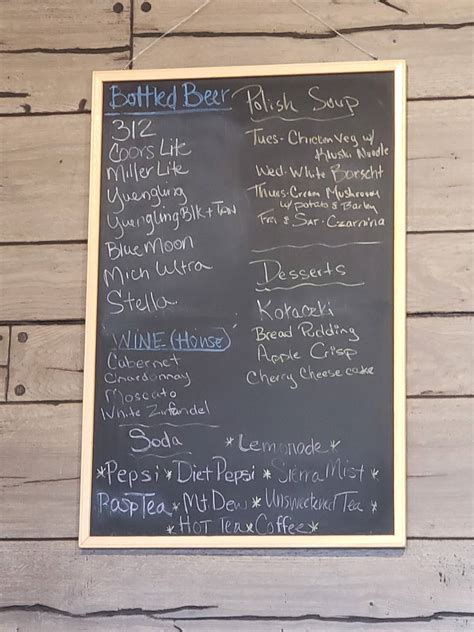 Bottled Beer
312
Coors Lite
Miller Lite
Yuengling
Yuengling Blk + Tan
Blue Moon
Mich Ultra
Stella
WINE (House)
Cabernet
Chardonnay
Moscato
White Zinfandel
Polish Soup
Tues- Chicken Veg w/
Kluski Noodle
Wed- White Borscht
Thues- Cream Mushroom
w/ potato & Barley
Fri & Sat- Czarnina
Desserts
Kolaczki
Bread Pudding
Apple Crisp
Cherry Cheesecake
Soda
*Lemonade*
*Pepsi *Diet Pepsi *Sierra Mist*
Rasp Tea *Mt Dew *Unsweetened Tea*
*Hot Tea *Coffee*